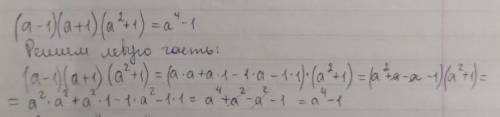 (a-1)(a+1)(a²+1)=a⁴-1
Решим левую часть:
(a-1)(a+1)(a²+1)=(a·a+a·1-1·a-1·1)·(a²+1)=(a²+a-a-1)(a²+1)=
=a²·a²+a²·1-1·a²-1·1=a⁴+a²-a²-1=a⁴-1